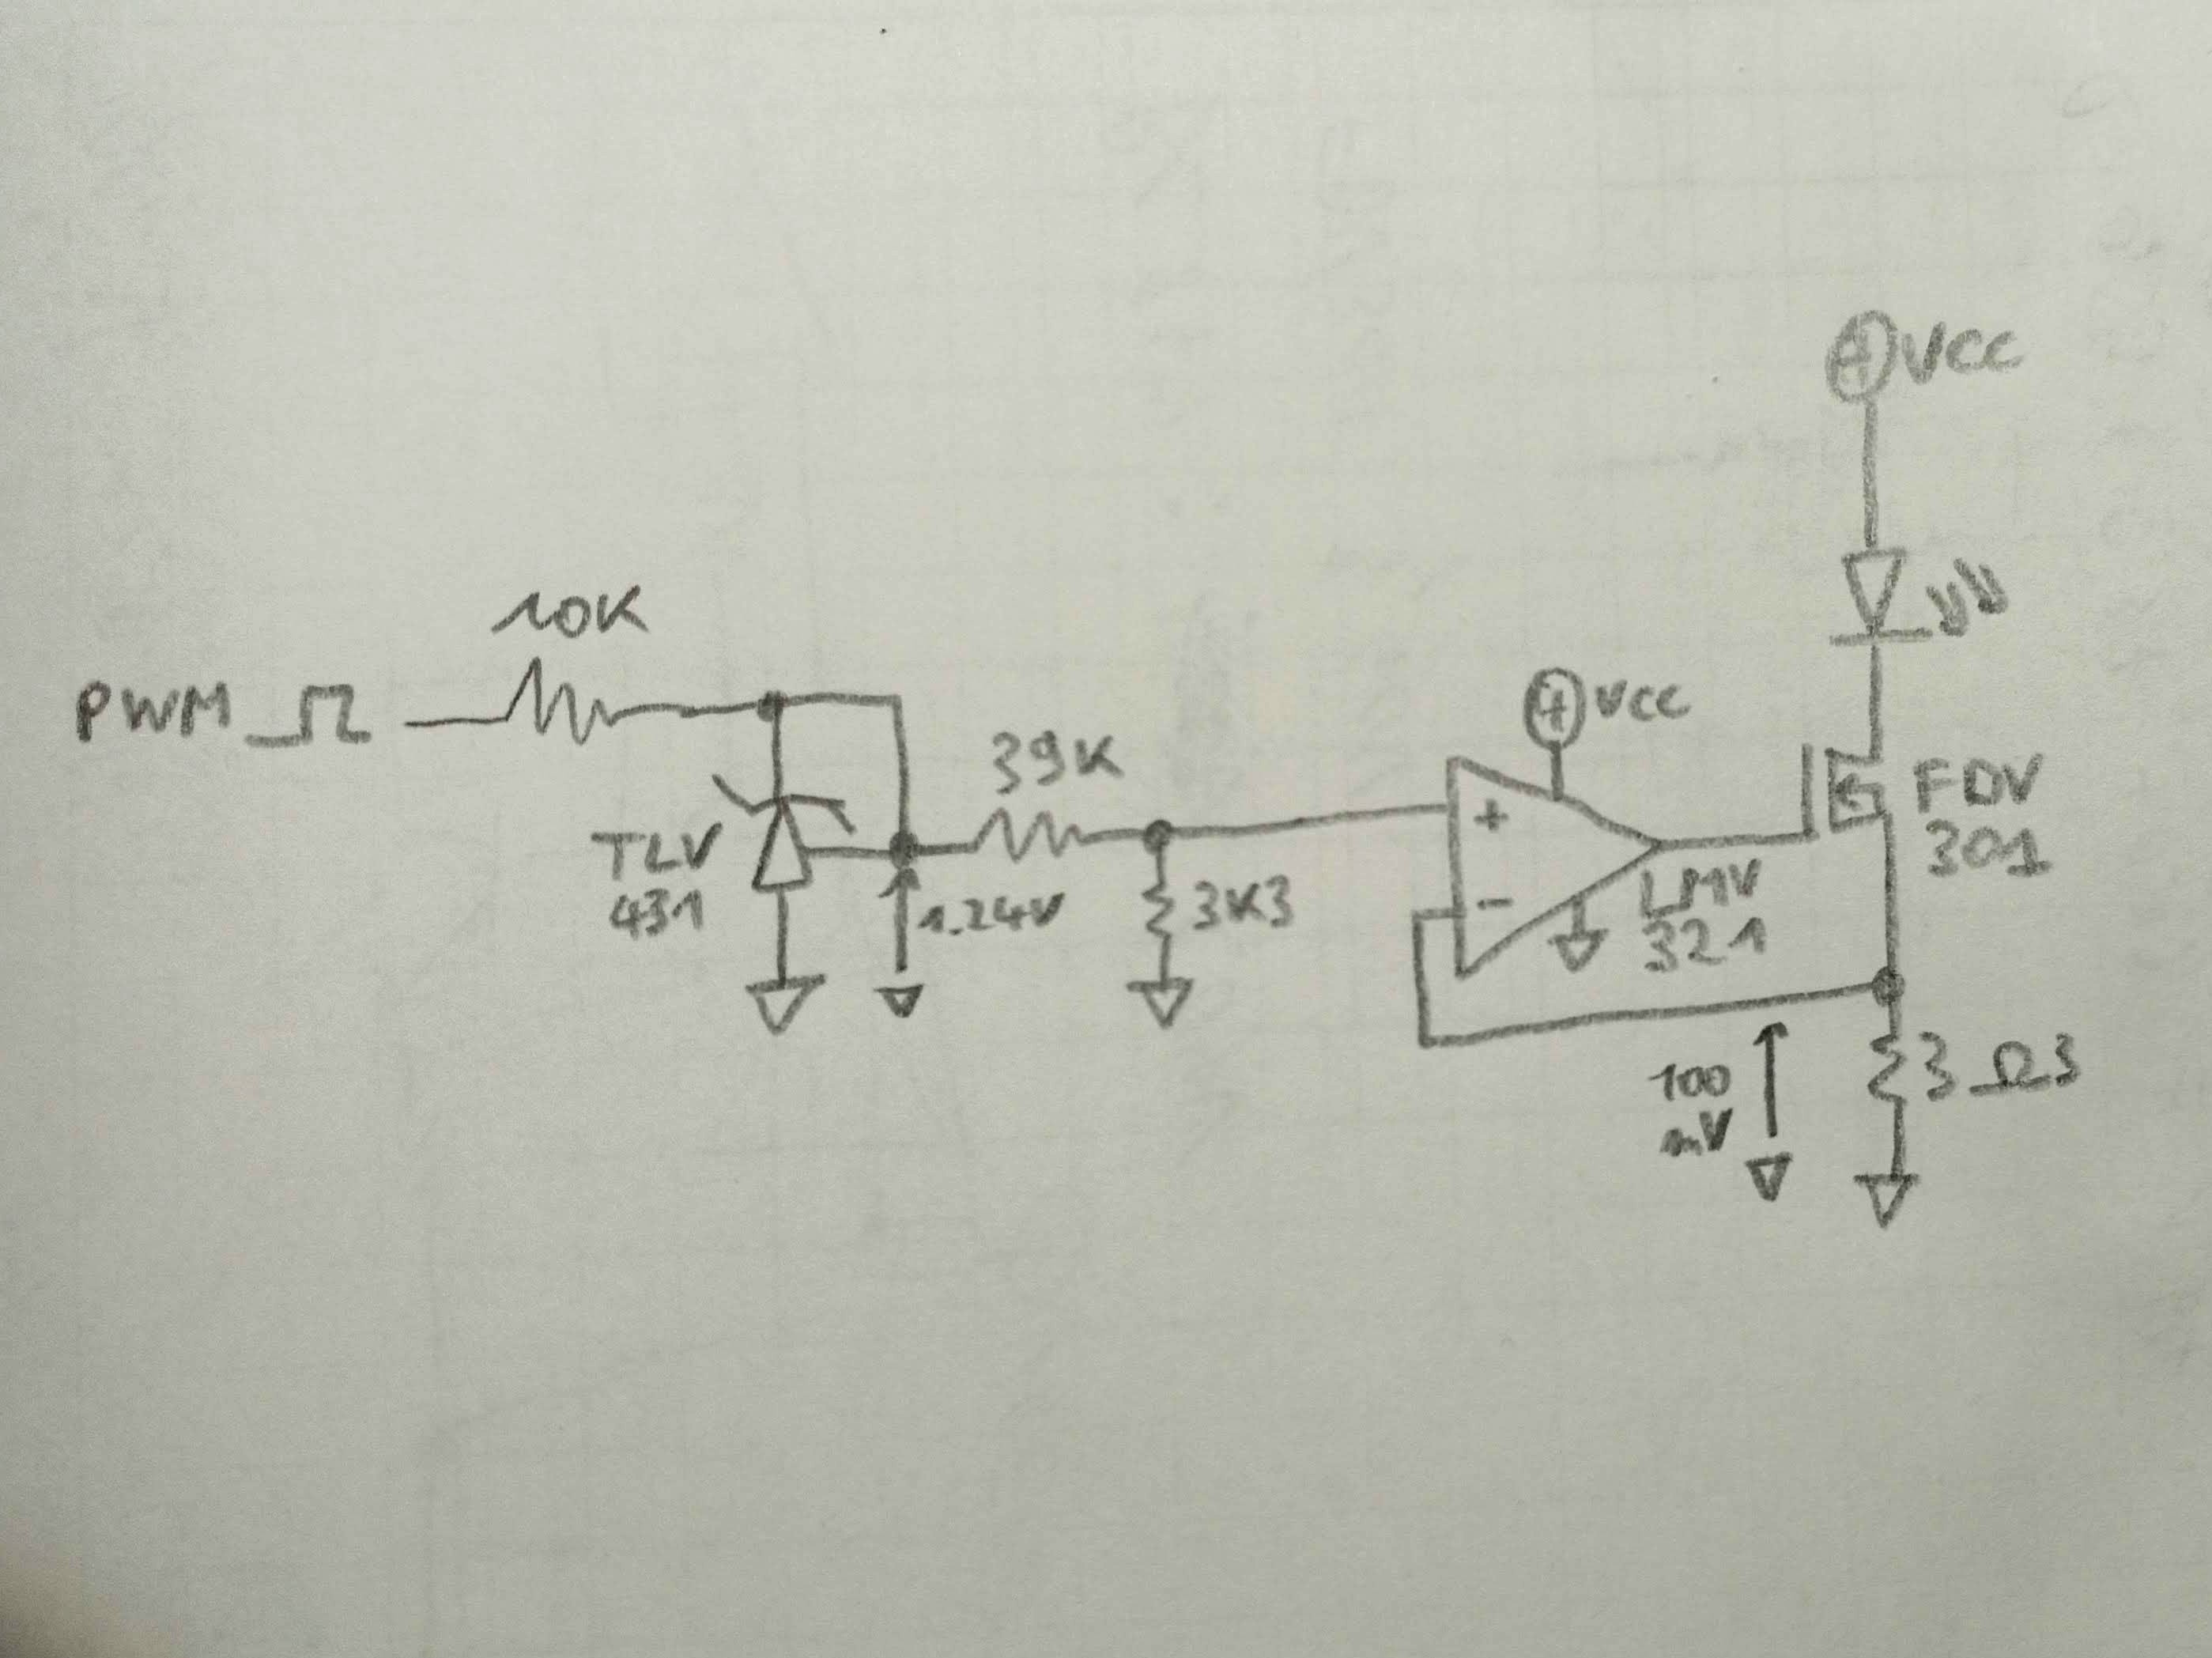 VCC
10K
PWM
VCC
39K
+
FDV
301
TLV
431
1.24V
3K3
-
LMV
321
100
mV
3Ω3